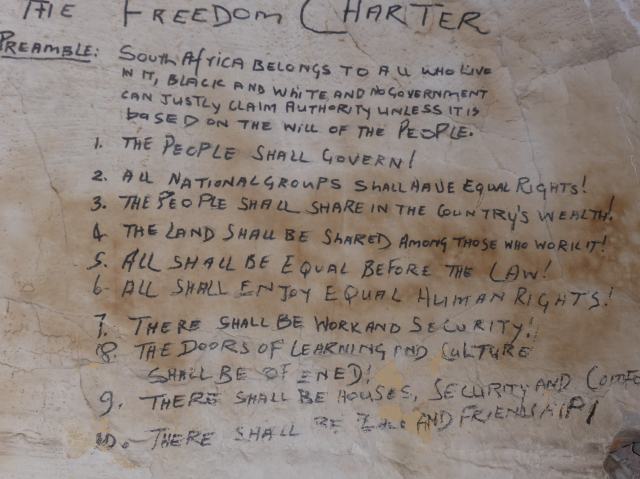 THE FREEDOM CHARTER
PREAMBLE: SOUTH AFRICA BELONGS TO ALL WHO LIVE
IN IT, BLACK AND WHITE AND NO GOVERNMENT
CAN JUSTLY CLAIM AUTHORITY UNLESS IT IS
BASED ON THE WILL OF THE PEOPLE.
1. THE PEOPLE SHALL GOVERN!
2. ALL NATIONAL GROUPS SHALL HAVE EQUAL RIGHTS!
3. THE PEOPLE SHALL SHARE IN THE COUNTRY'S WEALTH!
4. THE LAND SHALL BE SHARED AMONG THOSE WHO WORK IT!
5. ALL SHALL BE EQUAL BEFORE THE LAW!
6. ALL SHALL ENJOY EQUAL HUMAN RIGHTS!
7. THERE SHALL BE WORK AND SECURITY!
8. THE DOORS OF LEARNING AND CULTURE
SHALL BE OPENED!
9. THERE SHALL BE HOUSES, SECURITY AND
10. THERE SHALL BE AND FRIENDSHIP!